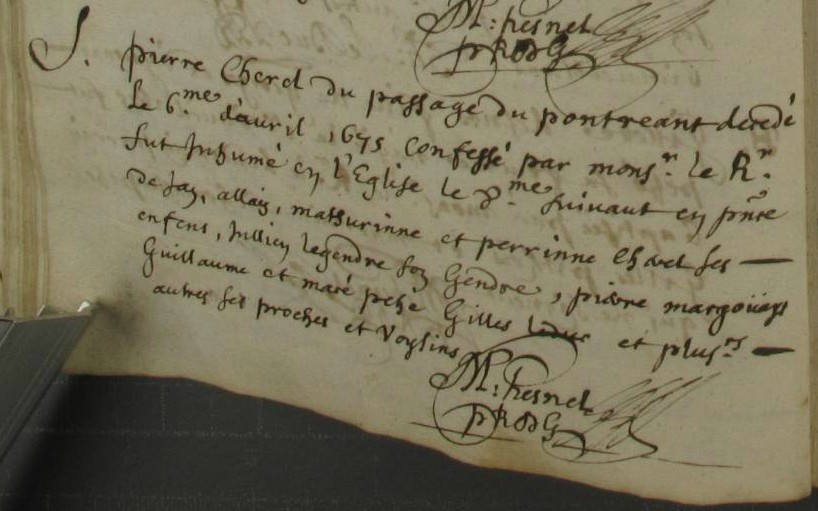 M: fresnel
S. pierre Cherel du passage du pontreant decedé
le 6.me d'auril 1675 confessé par mons.r le R.r
fut Inhumé en l'Eglise le 8.me suiuant en pñce
de Jan, allain, mathurinne et perrinne Cherel ses —
enfens, Jullien legendre son Gendre, pierre margoüays
Guillaume et maré Gilles et plus.rs —
autres ses proches et voysins
M: fresnel